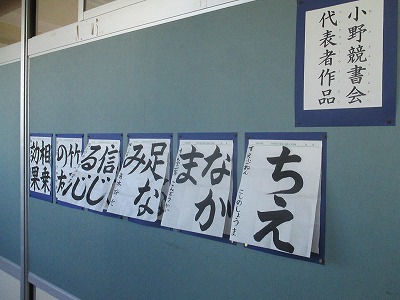 小野競書会
代表者作品
ちえ
なか
ま
足な
み
信じ
る心
竹馬
の友
相乗
効果